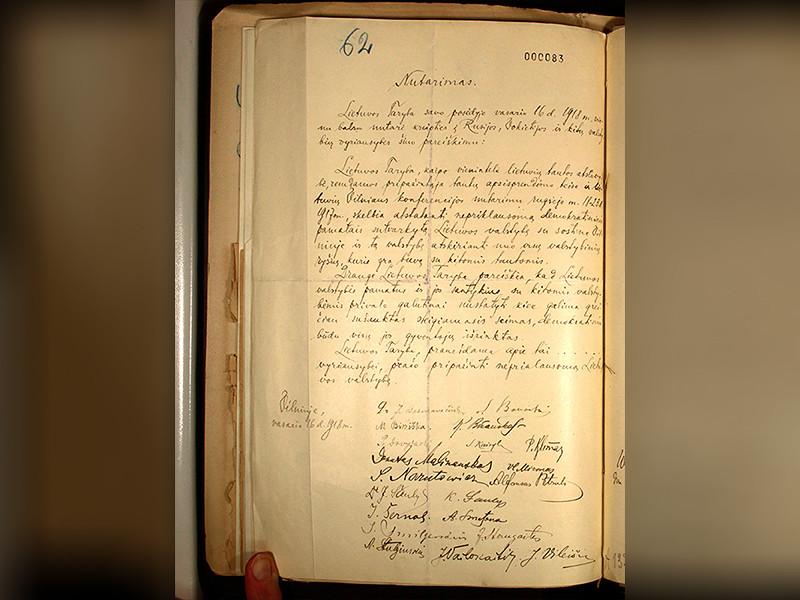 62
000083
Nutarimas.
Lietuvos Taryba savo posėdyje vasario 16 d. 1918 m. vie-
nu balsu nutarė kreiptis į Rusijos, Vokietijos ir kitų valsty-
bių vyriausybes šiuo pareiškimu:
Lietuvos Taryba, kaipo vienintelė lietuvių tautos atstovy-
bė, remdamos pripažintąja tautų apsisprendimo teise ir lie-
tuvių Vilniaus konferencijos nutarimu rugsėjo m. 18-23 d.
1917 m., skelbia atstatanti nepriklausomą demokratiniais
pamatais sutvarkytą Lietuvos valstybę su sostine Vil-
niuje ir tą valstybę atskirianti nuo visų valstybinių
ryšių, kurie yra buvę su kitomis tautomis.
Drauge Lietuvos Taryba pareiškia, kad Lietuvos
valstybės pamatus ir jos santykius su kitomis valsty-
bėmis privalo galutinai nustatyti kiek galima grei-
čiau sušauktas steigiamasis seimas, demokratiniu
būdu visų jos gyventojų išrinktas.
Lietuvos Taryba, pranešdama apie tai . . . . . .
vyriausybei, prašo pripažinti nepriklausomą Lietu-
vos valstybę.
Vilniuje,
vasario 16 d. 1918 m.
M. Biržiška.
K. Bizauskas
P. Klimas
Donatas Malinauskas
Vl. Mironas
S. Narutowicz
Alfonsas Petrulis
K. Šaulys
J. Šernas.
A. Smetona
A. Stulginskis
J. Vailokaitis
J. Vileišis